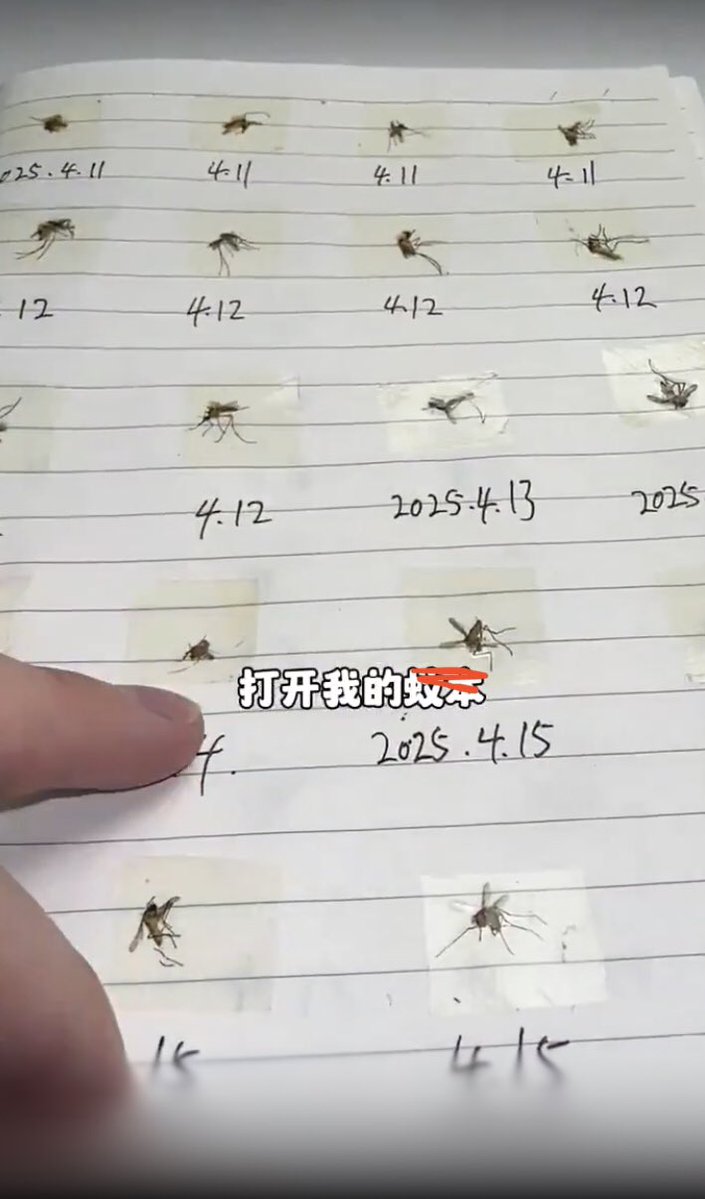 025.4.11 4.11 4.11 4.11
.12 4.12 4.12 4.12
4.12 2025.4.13 2025
打开我的蚊本
2025.4.15
15 4.15